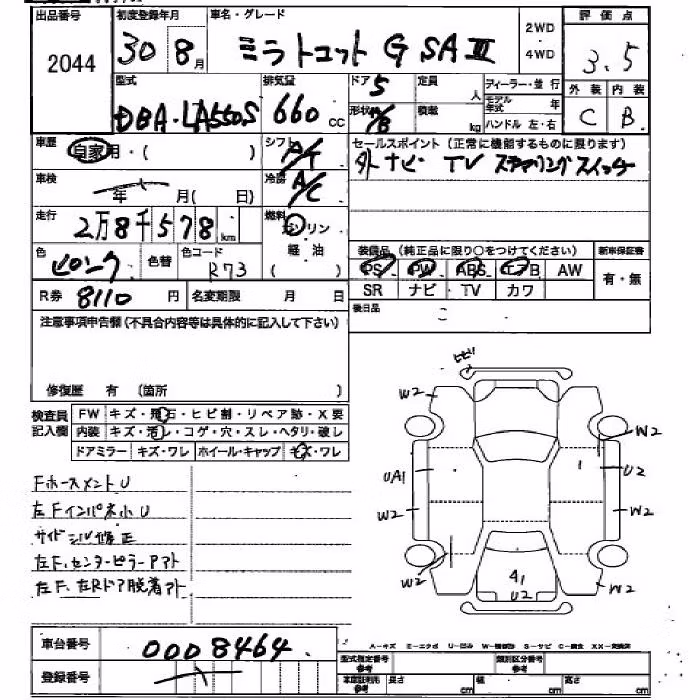 出品番号 初度登録年月 車名・グレード 2WD 評価点
2044 30 8月 ミラトコット G SA Ⅲ ・4WD 3.5
型式 排気量 ドア 定員 ディーラー・並行 外装 内装
DBA-LA550S 660cc 5 人 モデル年式 年 C B
形状 H/B 積載 kg ハンドル 左・右
車歴 自家用・( ) シフト A/T セールスポイント(正常に機能するものに限ります)
外ナビ TV ステアリングスイッチ
車検 年 月( 日) 冷房 A/C
走行 2万8千578km 燃料 ガソリン
軽油
色 ピンク 色替 色コード R73
装備品(純正品に限り○をつけてください) 新車保証書
PS PW ABS エアB AW 有・無
SR ナビ TV カワ
R券 8110円 名変期限 月 日
後日品
注意事項申告欄(不具合内容等は具体的に記入して下さい)
修復歴 有 (箇所 )
検査員記入欄 FW キズ・飛石・ヒビ割・リペア跡・X要
内装 キズ・汚レ・コゲ・穴・スレ・ヘタリ・破レ
ドアミラー キズ・ワレ ホイール・キャップ キズ・ワレ
Fホースメント U
左Fインパネ小U
サイドシル修正
左F.センターピラーアト
左F.左Rドア脱着アト
ヒビ
W2
W2
UA1 1 U2
W2 W2
W2 41 W2
U2
車台番号 0008464
登録番号
A-キズ E-エクボ U-凹み W-補修跡 S-サビ C-腐食 XX-交換済
型式指定番号 参考 類別区分番号 参考
車庫証明用 参考 長さ cm 幅 cm 高さ cm